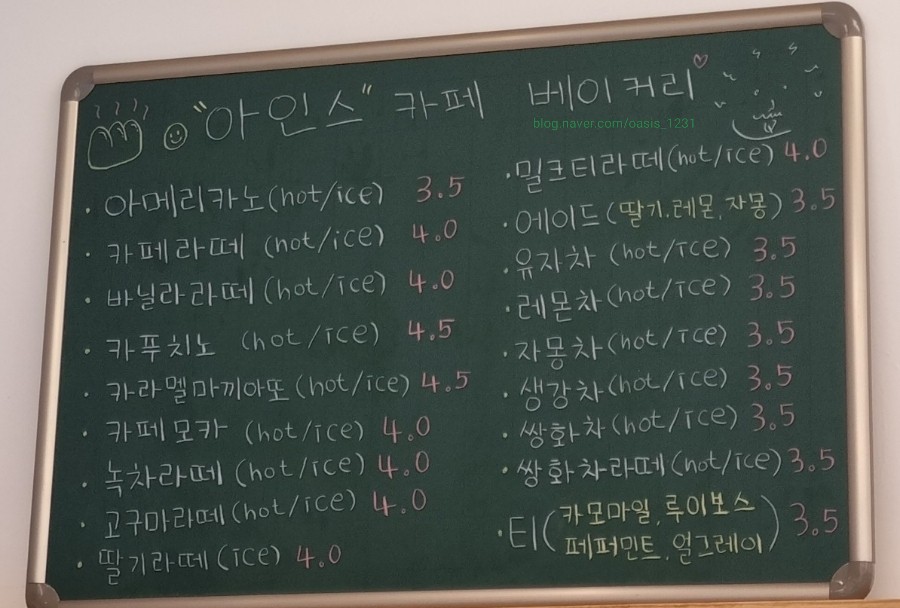 "아인스" 카페 베이커리
blog.naver.com/oasis_1231
· 아메리카노(hot/ice) 3.5
· 카페라떼 (hot/ice) 4.0
· 바닐라라떼(hot/ice) 4.0
· 카푸치노 (hot/ice) 4.5
· 카라멜마끼아또(hot/ice) 4.5
· 카페모카 (hot/ice) 4.0
· 녹차라떼(hot/ice) 4.0
· 고구마라떼(hot/ice) 4.0
· 딸기라떼(ice) 4.0
· 밀크티라떼(hot/ice) 4.0
· 에이드(딸기.레몬.자몽) 3.5
· 유자차 (hot/ice) 3.5
· 레몬차(hot/ice) 3.5
· 자몽차(hot/ice) 3.5
· 생강차(hot/ice) 3.5
· 쌍화차(hot/ice) 3.5
· 쌍화차라떼(hot/ice) 3.5
· 티(카모마일.루이보스
페퍼민트.얼그레이) 3.5